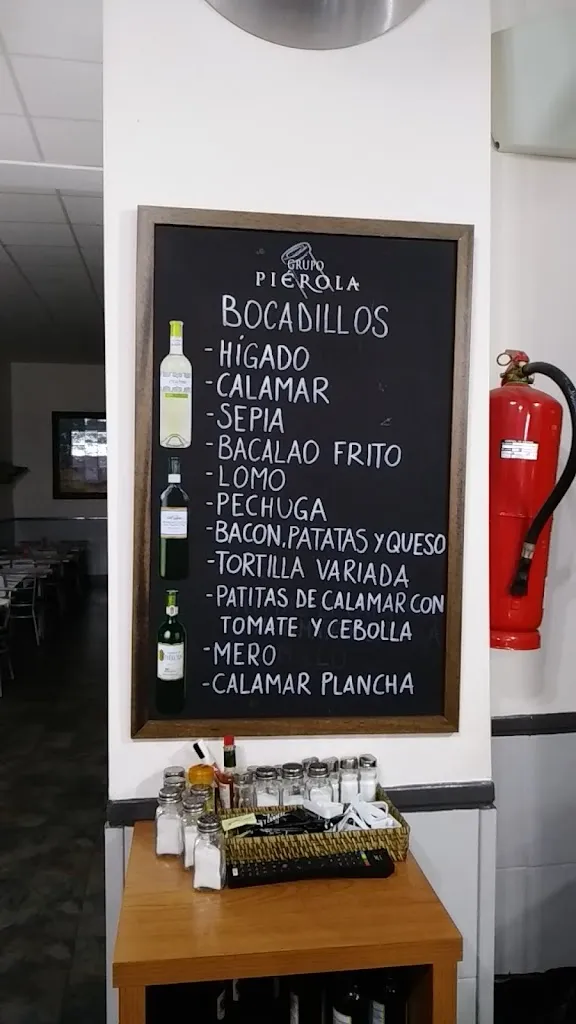 GRUPO
PIÉROLA
BOCADILLOS
-HÍGADO
-CALAMAR
-SEPIA
-BACALAO FRITO
-LOMO
-PECHUGA
-BACON,PATATAS Y QUESO
-TORTILLA VARIADA
-PATITAS DE CALAMAR CON
TOMATE Y CEBOLLA
-MERO
-CALAMAR PLANCHA